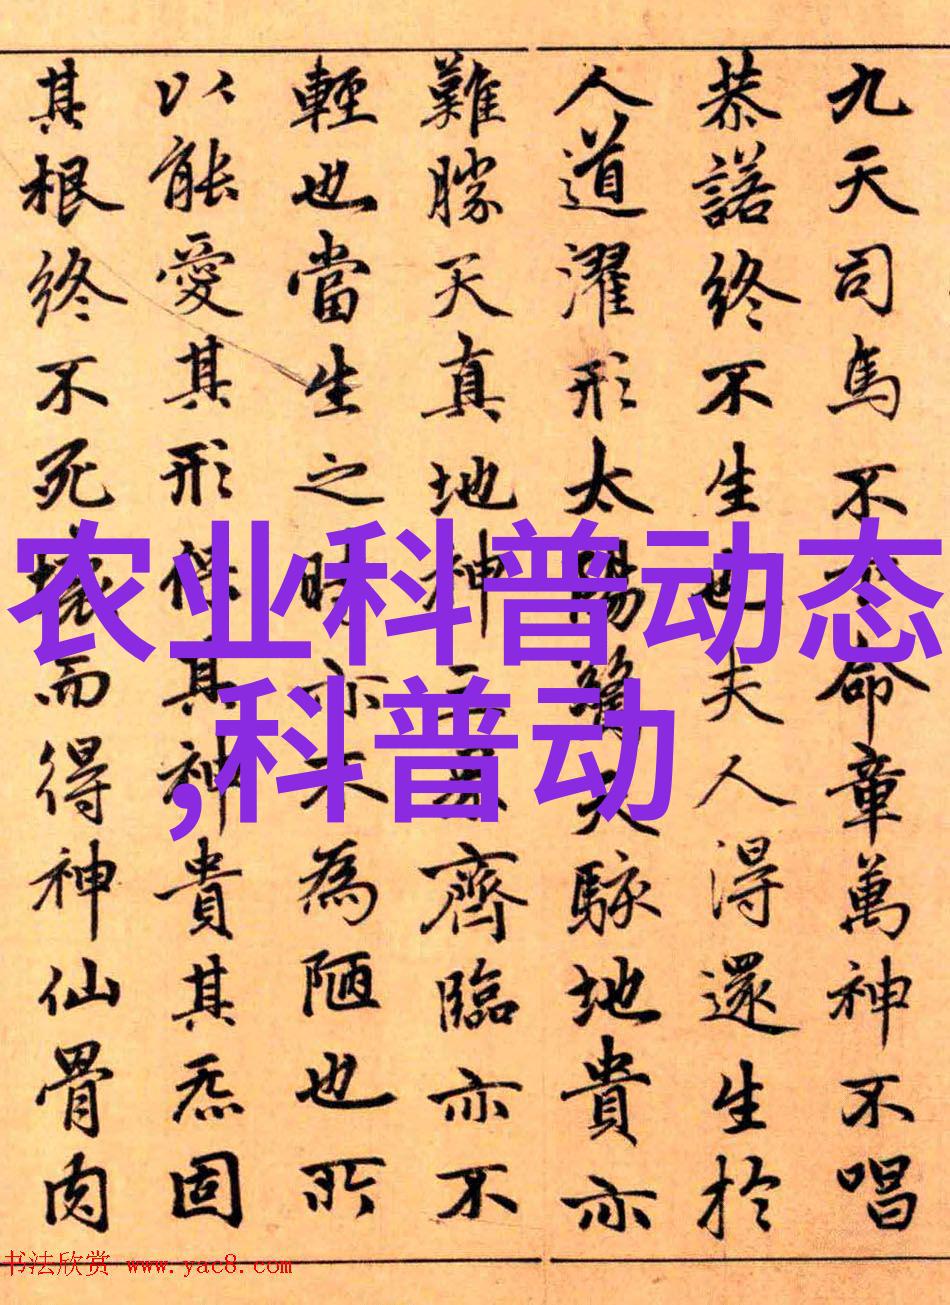 九天司馬不命章萬神不唱
恭諾終不生也夫人得還生於
人道濯形太陽天駭地貴亦
難勝天真地神齊臨亦不
輕也當生之時亦不為陋也所
以能愛其形保其神貴其炁固
其根終不死壞而得神仙骨肉
农业科普动态
,科普动
书法欣赏 www.yac8.com